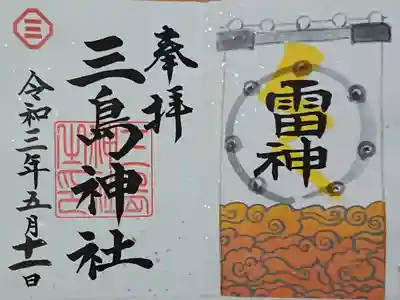 雷神
奉拝
三島神社
令和三年五月十一日